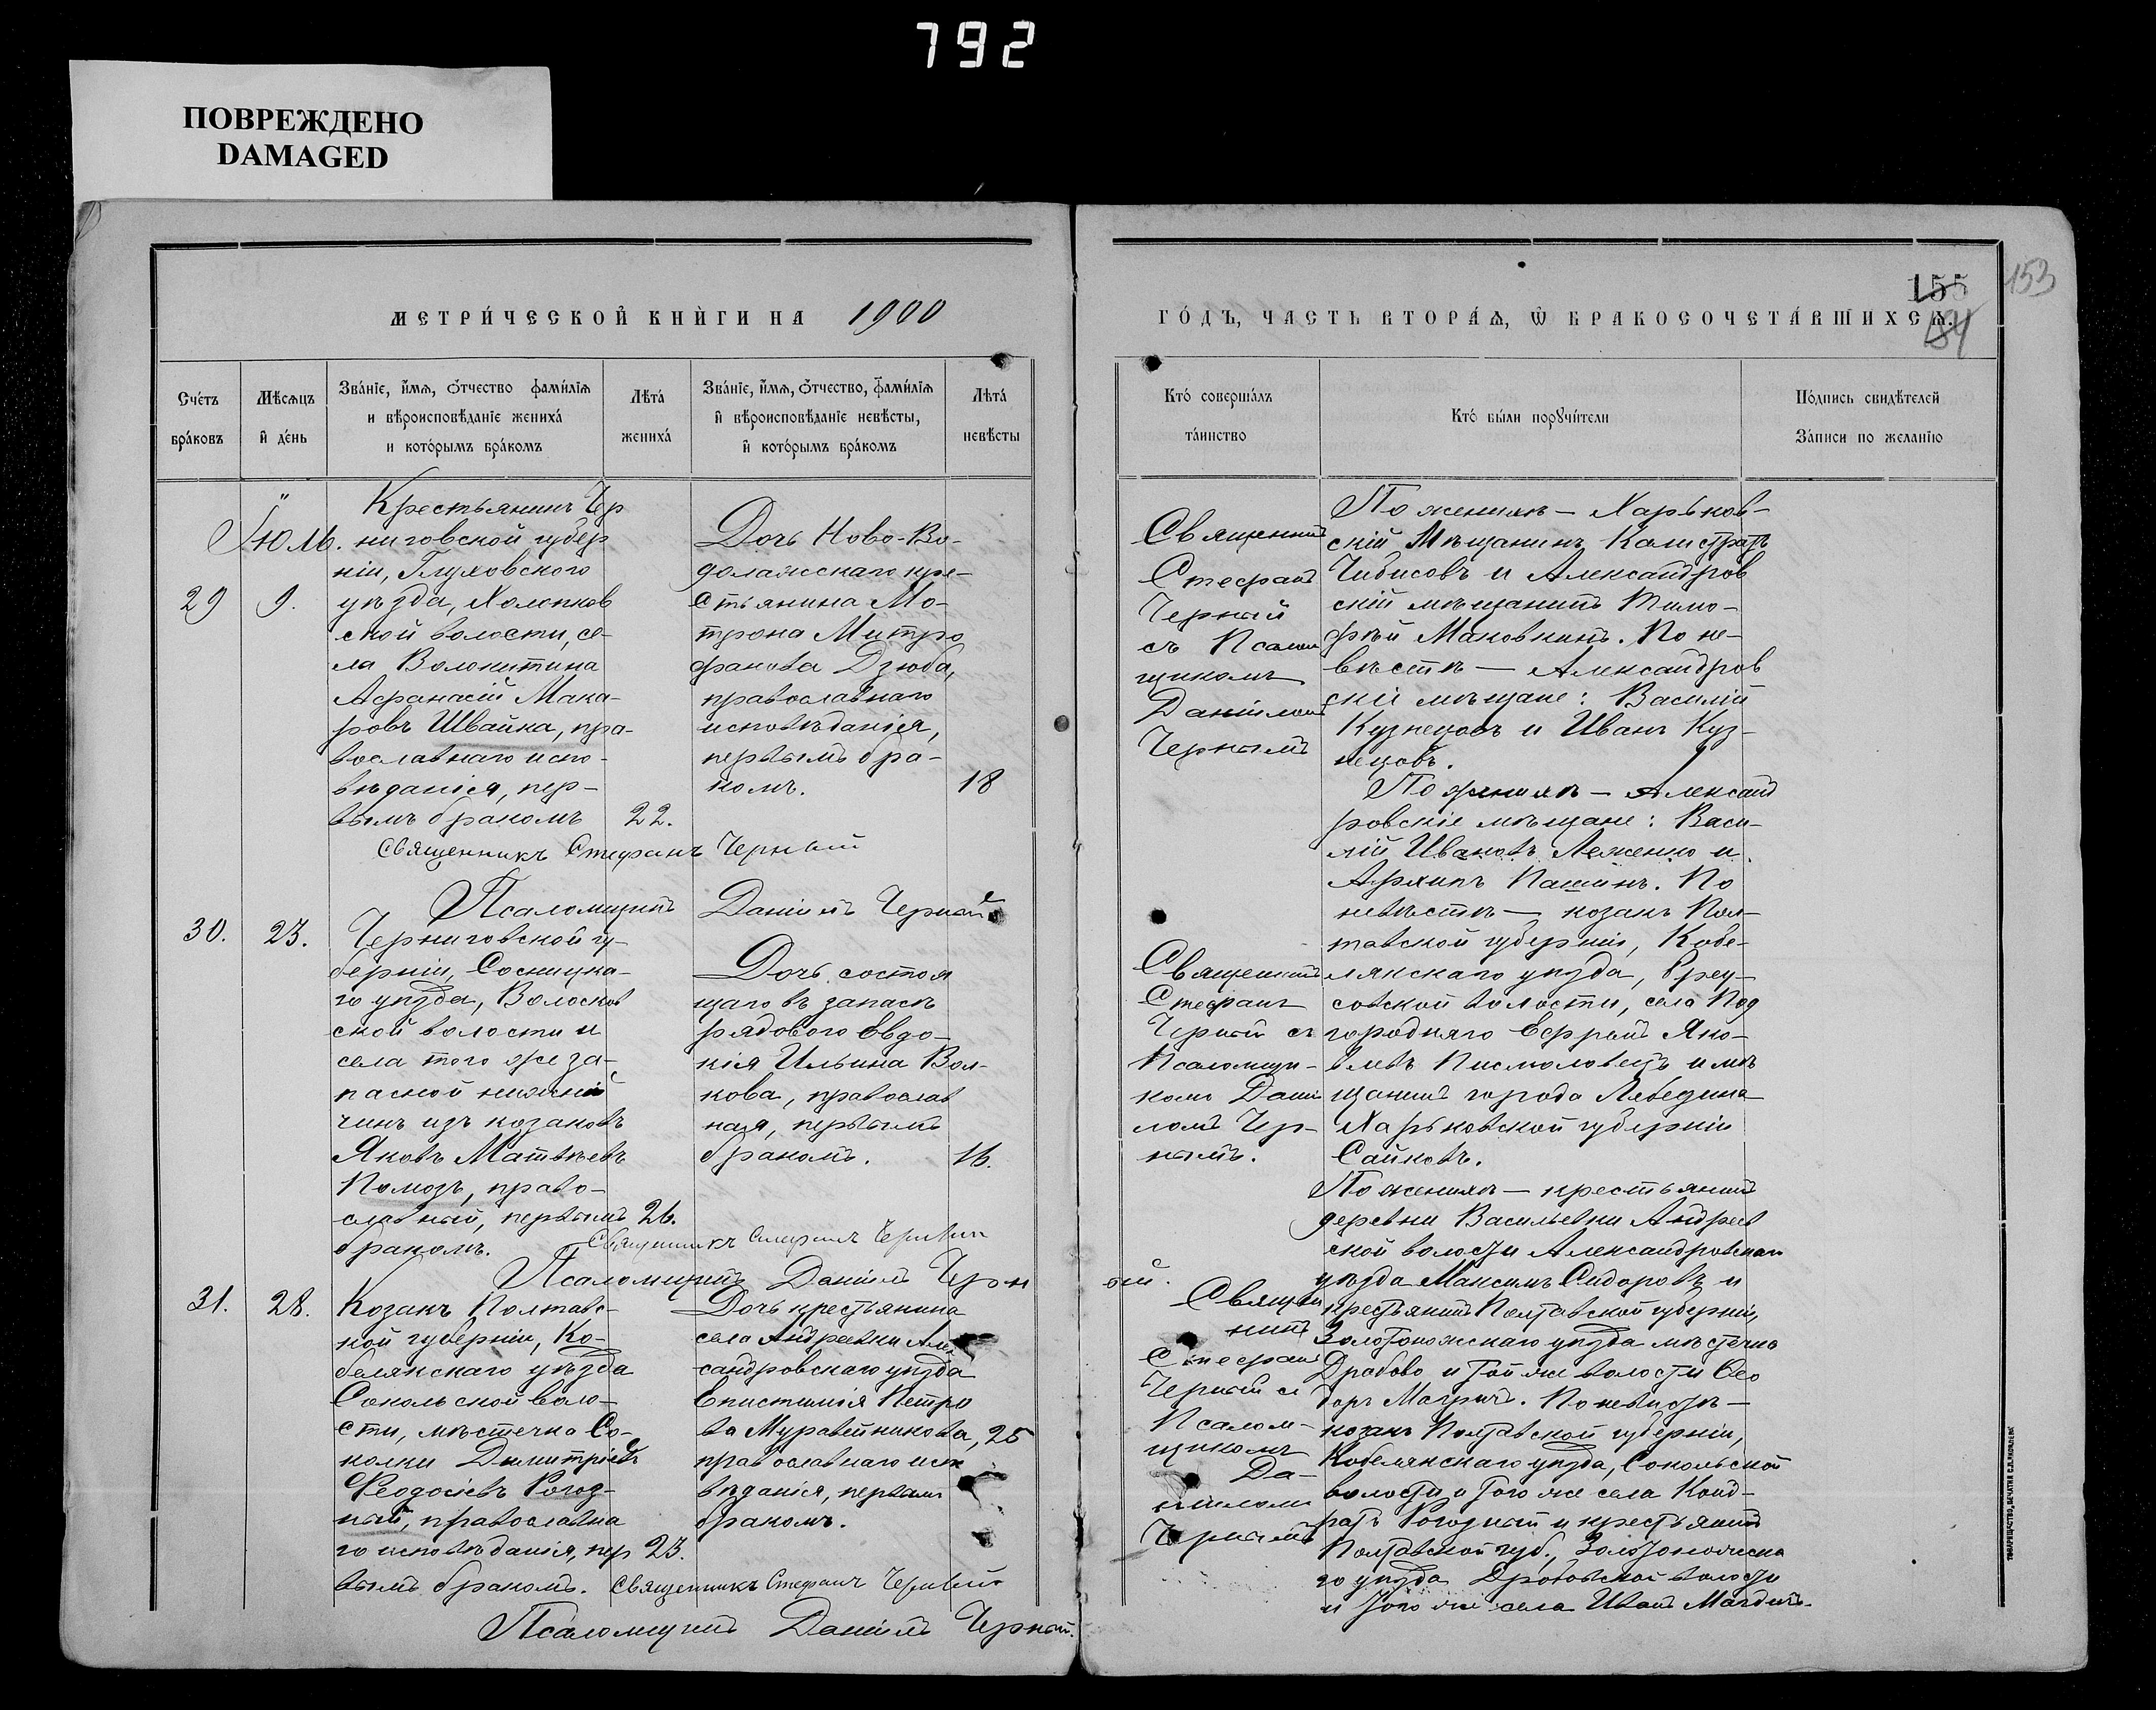 792
ПОВРЕЖДЕНО
DAMAGED
155
153
154
МЕТРИ́ЧЕСКОЙ КНИ́ГИ НА 1900
ГО́ДЪ, ЧАСТЬ ВТОРА́Ѧ, Ѽ БРАКОСОЧЕТА́ВШИХСѦ.
Сче́тъ
бра́ковъ
Мѣ́сѧцъ
и̂ де́нь
Зва́нїе, и҆́мѧ, о҆́тчество фами́лїѧ
и вѣроисповѣ́данїе жениха́
и кото́рымъ бра́комъ
Лѣта́
жениха́
Зва́нїе, и҆́мѧ, о҆́тчество, фами́лїѧ
и҆ вѣроисповѣ́данїе невѣ́сты,
и҆ кото́рымъ бра́комъ
Лѣта́
невѣ́сты
Кто́ соверша́лъ
та́инство
Кто́ бы́ли порꙋчи́тели
По́дпись свидѣ́телей
За́писи по жела́нїю
29
"
Іюль.
9.
Крестьянинъ Чер
ниговской губер
ніи, Глуховского
уѣзда, Холопков
ской волости, се-
ла Волокитина
Афанасій Мака-
ровъ Швайка, пра-
вославнаго испо-
вѣданія, пер-
вымъ бракомъ
22.
Дочь Ново-Во-
долажскаго кре-
стьянина Мо-
трона Митро
фанова Дзюба,
православнаго
исповѣданія,
первымъ бра-
комъ.
18
Священникъ
Стефанъ
Черный
съ Псалом
щикомъ
Даніиломъ
Чернымъ
По женихѣ — Харьков-
скій Мѣщанинъ Калистратъ
Чибисовъ и Александров
скій мѣщанинъ Тимо-
фѣй Маковкинъ. По не-
вѣстѣ — Александров
скіи мѣщане: Василій
Кузнецовъ и Иванъ Куз-
нецовъ.
Священникъ Стефанъ Черный
Псаломщикъ Даніилъ Черный
30.
23.
Черниговской гу-
берніи, Сосницка-
го уѣзда, Волосков
ской волости и
села того же за-
пасной нижній
чинъ изъ козаковъ
Яковъ Матвѣевъ
Помозъ, право-
славный, первымъ
бракомъ.
26.
Дочь состоя
щаго въ запасѣ
рядового Евдо-
кія Ильина Вол-
кова, православ
ная, первымъ
бракомъ.
16.
Священникъ
Стефанъ
Черный съ
Псаломщи-
комъ Дані
ломъ Чер-
нымъ.
По женихѣ — Александ
ровскіе мѣщане: Васи-
лій Ивановъ Леженко и
Архипъ Пашинъ. По
невѣстѣ — козакъ Пол-
тавской губерніи, Кобе-
лякскаго уѣзда,
совской волости, села Под
городняго Ефремъ Яко-
влевъ и мѣ
щанинъ города Лебедина
Харьковской губерніи
Сайковъ.
Священникъ Стефанъ Черный
Псаломщикъ Даніилъ Черн
ый.
31.
28.
Козакъ Полтавс-
кой губерніи, Ко-
белякскаго уѣзда
Сокольской воло-
сти, мѣстечка Со-
колки Димитрій
Феодосіевъ Рогоз-
ный, православна
го исповѣданія, пер
вымъ бракомъ.
23.
Дочь крестьянина
села Андреевки Алек
сандровскаго уѣзда
Епистимія Петро
ва Муравейникова,
православнаго испо
вѣданія, первымъ
бракомъ.
25
Священ
никъ
Стефанъ
Черный съ
Псалом-
щикомъ
Да-
ніиломъ
Чернымъ
По женихѣ — крестьянинъ
деревни Васильевки Андреев
ской волости Александровскаго
уѣзда Максимъ Сидоровъ и
крестьянинъ Полтавской губерніи,
Золотоножскаго уѣзда мѣстечка
Драбово и той же волости Ѳео
доръ. По невѣстѣ —
козакъ Полтавской губерніи,
Кобелякскаго уѣзда, Сокольской
волости и того же села Конд-
ратъ Рогозный и крестьянинъ
Полтавской губ., Золотоножска
го уѣзда Дробовской волости
и того же села Иванъ
Священникъ Стефанъ Черный
Псаломщикъ Даніилъ Черный.